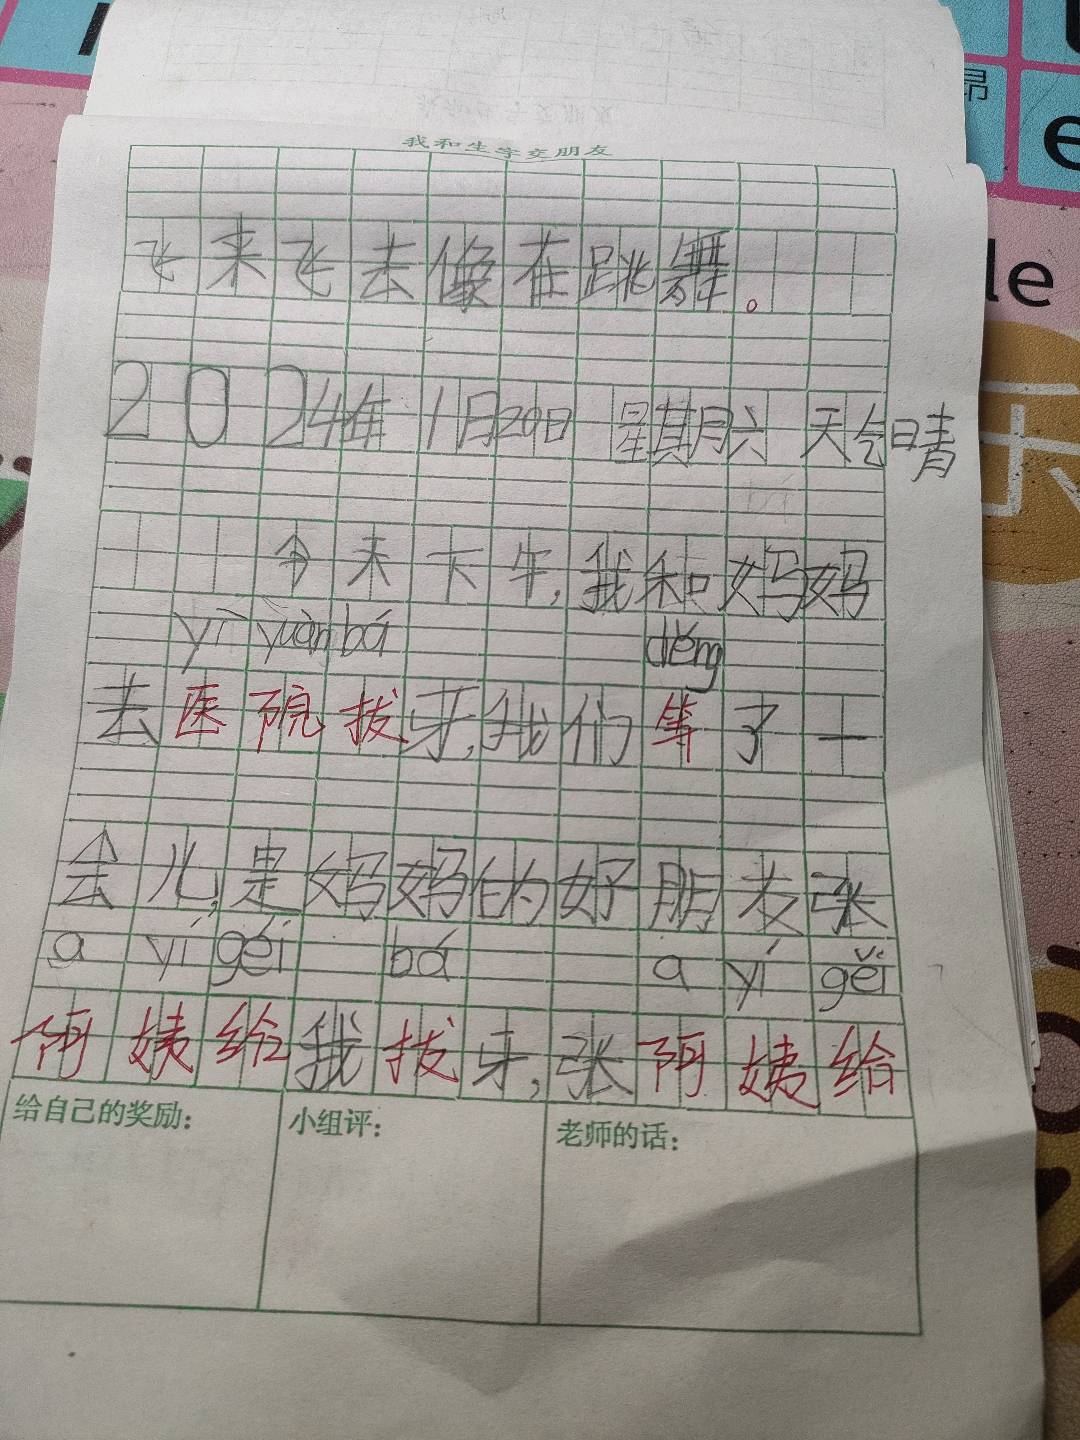 我和生字交朋友
飞来飞去像在跳舞。
2024年1月20日 星期月六 天气晴
今天下午,我和妈妈
yī yuàn bá děng
去医院拔牙,我们等了一
会儿,是妈妈的好朋友张
a yí gěi bá a yí gěi
阿姨给我拔牙,张阿姨给
给自己的奖励:
小组评:
老师的话:
昂
e
le